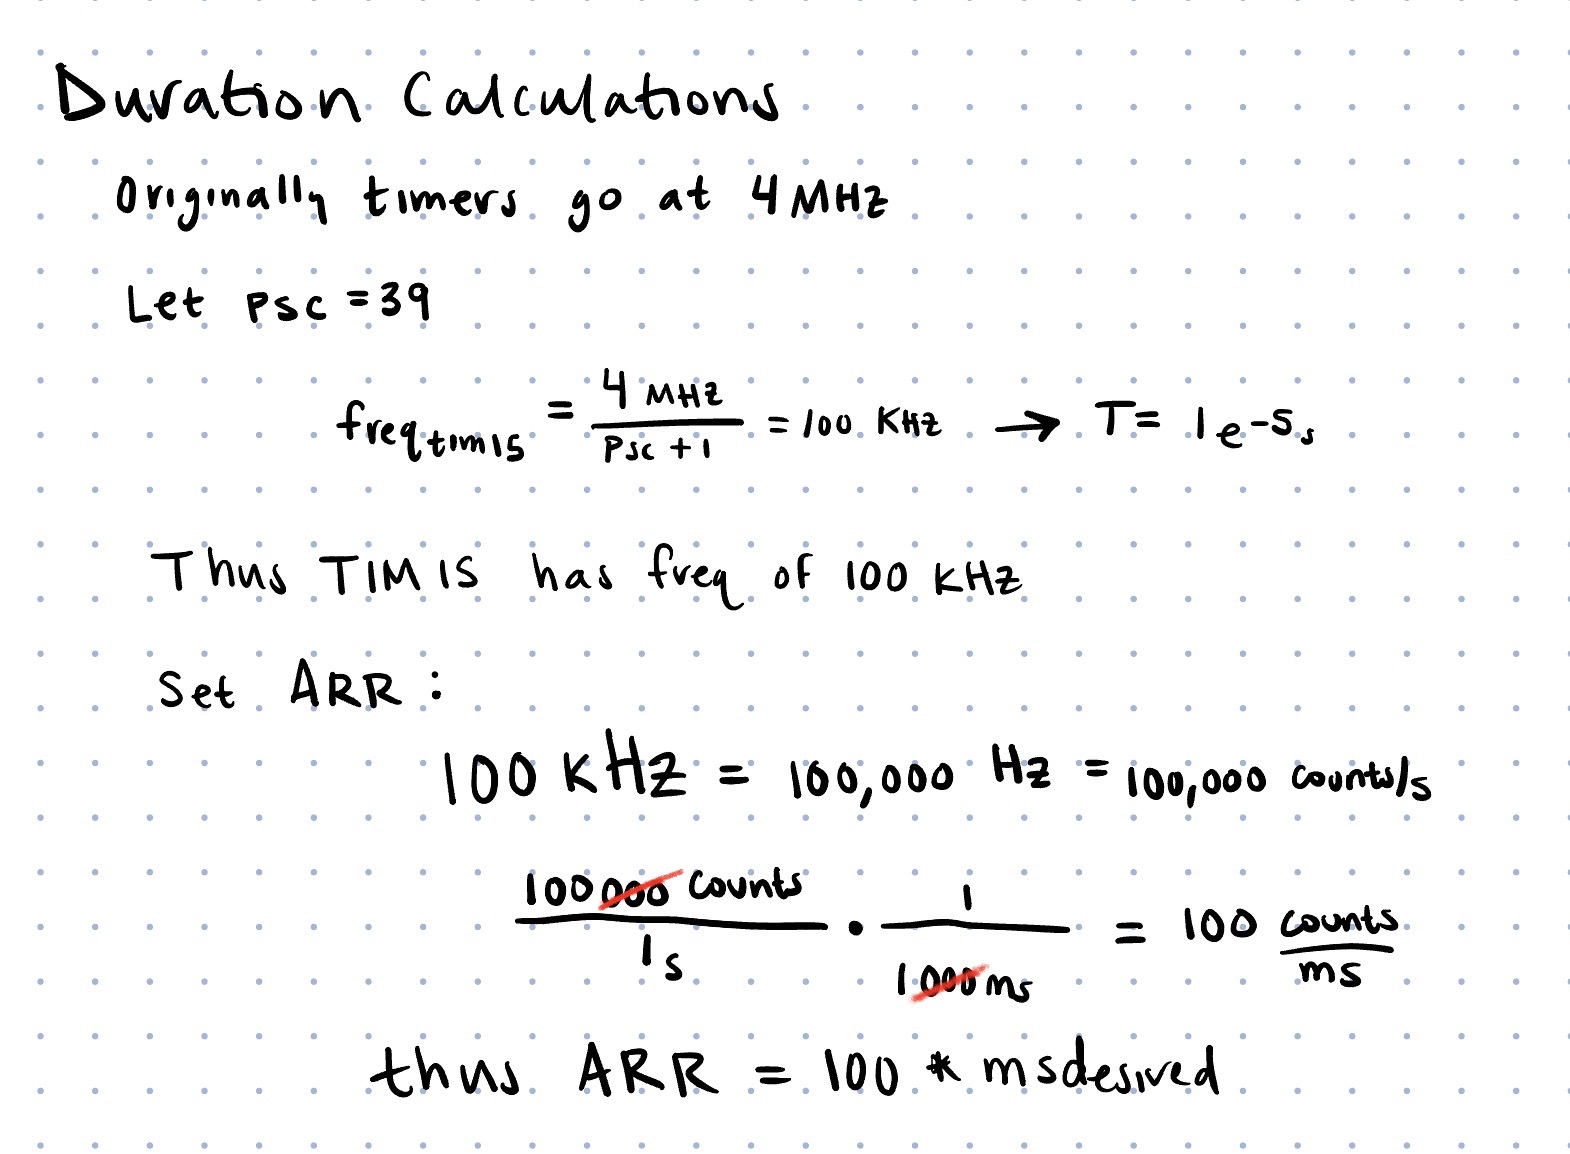 Duration Calculations
Originally timers go at 4 MHz
Let psc = 39
freq tim15 = 4 MHz / Psc + 1 = 100 KHz → T = 1e-5 s
Thus TIM15 has freq of 100 KHz
Set ARR :
100 KHz = 100,000 Hz = 100,000 counts/s
100000 counts / 1s • 1 / 1000 ms = 100 counts / ms
thus ARR = 100 * msdesired